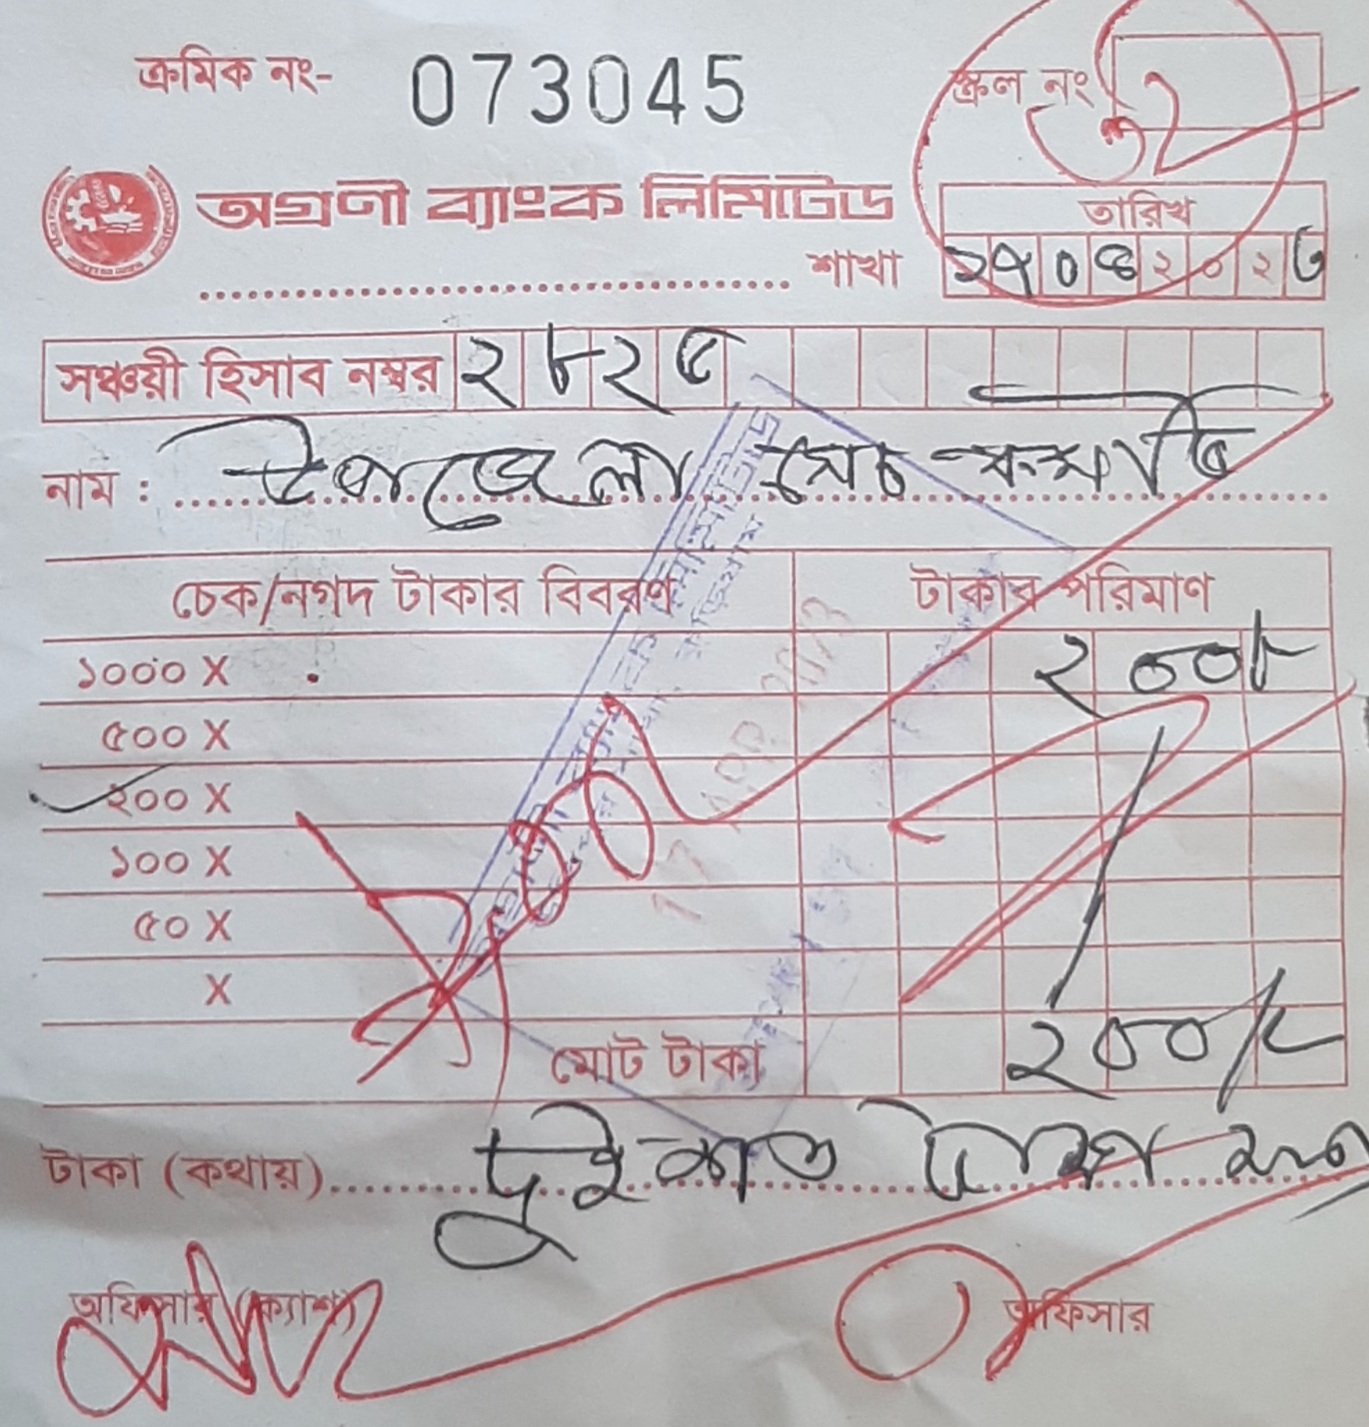 ক্রমিক নং- 073045
স্ক্রল নং ৩২
অগ্রণী ব্যাংক লিমিটেড
তারিখ
শাখা ১৭০৪২০২৩
সঞ্চয়ী হিসাব নম্বর ২৮২৫
নাম : উপজেলা সেচ কমিটি
চেক/নগদ টাকার বিবরণ টাকার পরিমাণ
১০০০ X ২০০/-
৫০০ X
২০০ X
১০০ X
৫০ X
X
মোট টাকা ২০০/-
টাকা (কথায়) দুইশত টাকা মাত্র
অফিসার (ক্যাশ) অফিসার
17 APR 2023